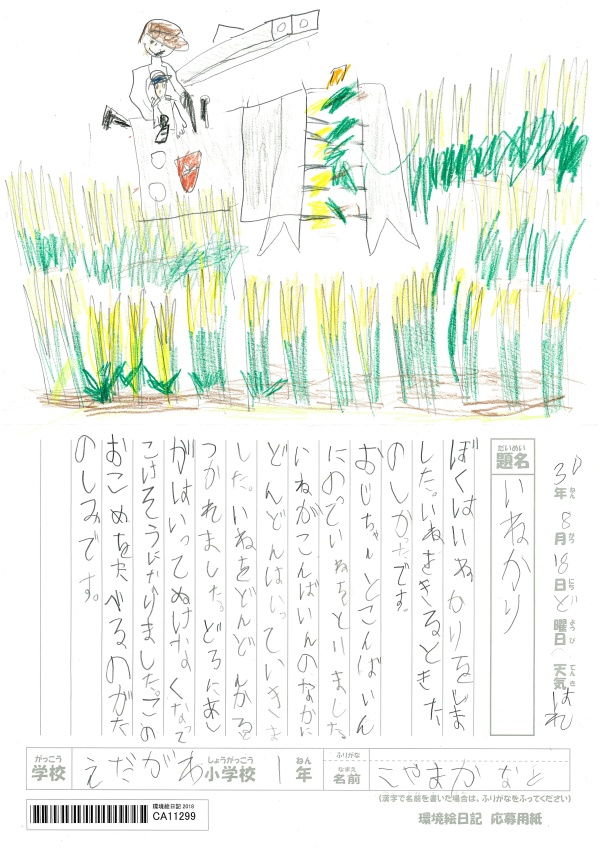 30年8月18日ど曜日 天気はれ
ねん がつ にち ようび てんき
だいめい
題名
いねかり
ぼくはいねかりをしま
した。いねをきるときた
のしかったです。
おじちゃんとこんばいん
にのっていねをとりました。
いねがこんばいんのなかに
どんどんはいっていきま
した。いねをどんどんかると
つかれました。どろにあし
がはいってぬけなくなって
こけそうになりました。この
おこめをたべるのがた
のしみです。
がっこう
学校
えだがわ小学校
しょうがっこう
1年
ねん
ふりがな
なまえ
名前
こやまかなと
(漢字で名前を書いた場合は、ふりがなをふってください)
環境絵日記 応募用紙
環境絵日記 2018
CA11299